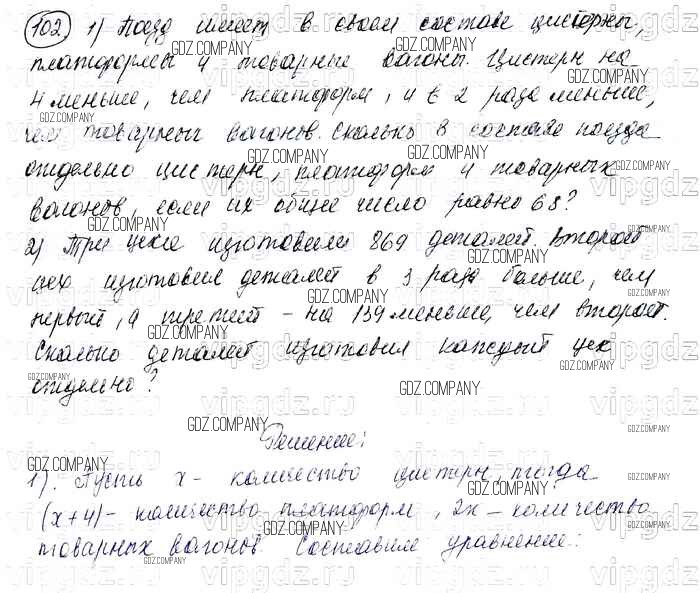 102. 1) Поезд имеет в своем составе цистерны,
платформы и товарные вагоны. Цистерн на
4 меньше, чем платформ, и в 2 раза меньше,
чем товарных вагонов. Сколько в составе поезда
отдельно цистерн, платформ и товарных
вагонов, если их общее число равно 68?
2) Три цеха изготовили 869 деталей. Второй
цех изготовил деталей в 3 раза больше, чем
первый, а третий - на 139 меньше, чем второй.
Сколько деталей изготовил каждый цех
отдельно?
Решение:
1). Пусть x - количество цистерн, тогда
(x+4) - количество платформ, 2x - количество
товарных вагонов. Составим уравнение: